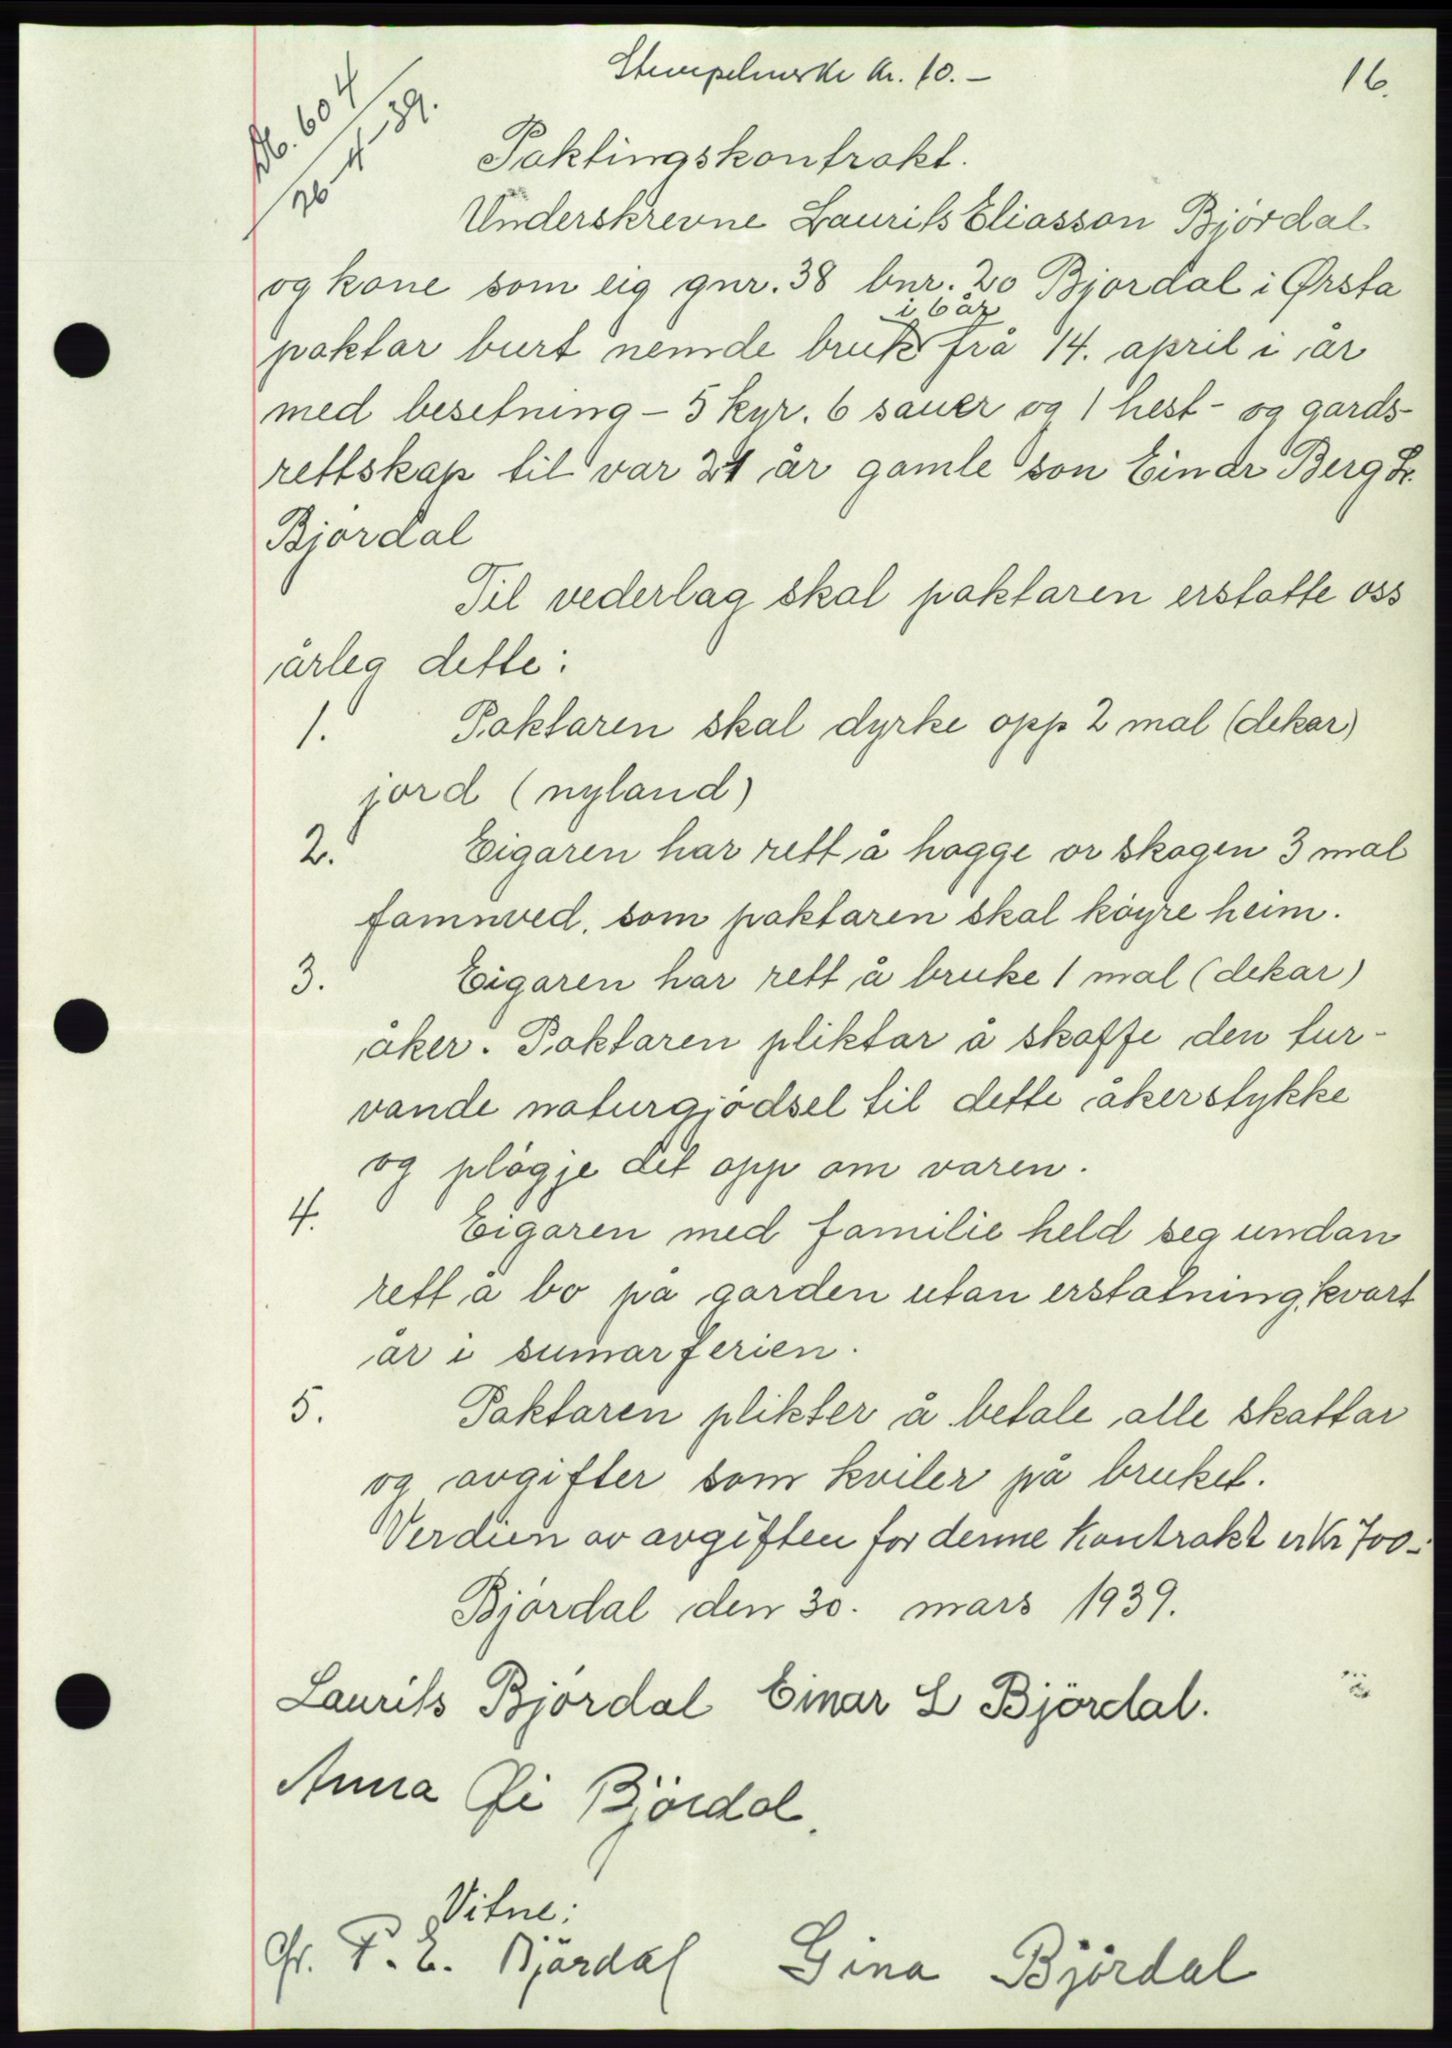 Stempelmerke kr. 10.- 16.
Db. 604
26/4-39.
Paktingskontrakt.
Underskrevne Laurits Eliasson Bjørdal
og kone som eig gnr. 38 bnr. 20 Bjørdal i Ørsta
i 6 år
paktar burt nemde bruk frå 14. april i år
med besetning - 5 kyr. 6 sauer og 1 hest - og gards-
rettskap til vår 21 år gamle son Einar Berg L.
Bjørdal
Til vederlag skal paktaren erstatte oss
årleg dette:
1. Paktaren skal dyrke opp 2 mål (dekar)
jord (nyland)
2. Eigaren har rett å hogge or skogen 3 mål
famnved, som paktaren skal köyre heim.
3. Eigaren har rett å bruke 1 mål (dekar)
åker. Paktaren pliktar å skaffe den tur-
vande naturgjödsel til dette åkerstykke
og plögje det opp om våren.
4. Eigaren med familie held seg undan
rett å bo på garden utan erstatning, kvart
år i sumarferien.
5. Paktaren plikter å betale alle skattar
og avgifter som kviler på bruket.
Verdien av avgiften for denne kontrakt er kr 700.-
Bjørdal den 30. mars 1939.
Laurits Bjørdal Einar L Björdal.
Anna Björdal.
Vitne:
P. E. Bjärdal Gina Björdal